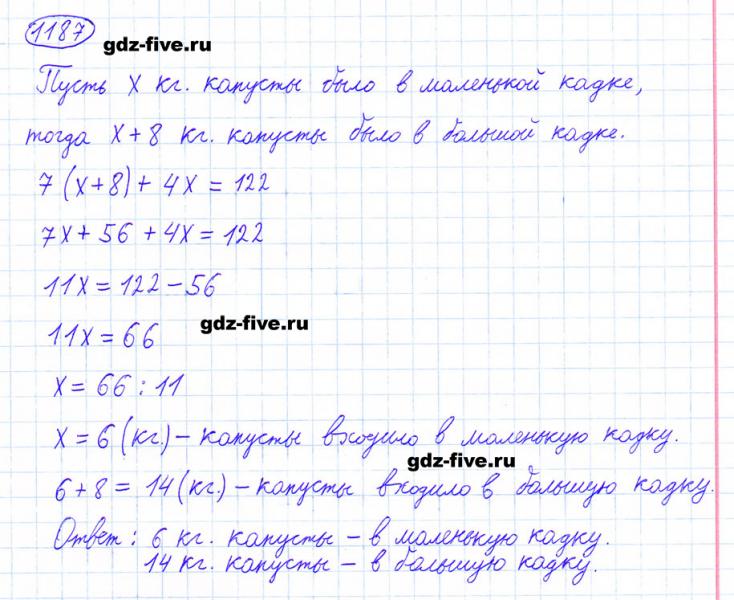 1187
gdz-five.ru
Пусть х кг. капусты было в маленькой кадке,
тогда х+8 кг. капусты было в большой кадке.
7(х+8)+4х=122
7х+56+4х=122
11х=122-56
11х=66
gdz-five.ru
х=66:11
х=6(кг.)-капусты входило в маленькую кадку.
gdz-five.ru
6+8=14(кг.)-капусты входило в большую кадку.
Ответ: 6 кг. капусты - в маленькую кадку.
14 кг. капусты - в большую кадку.